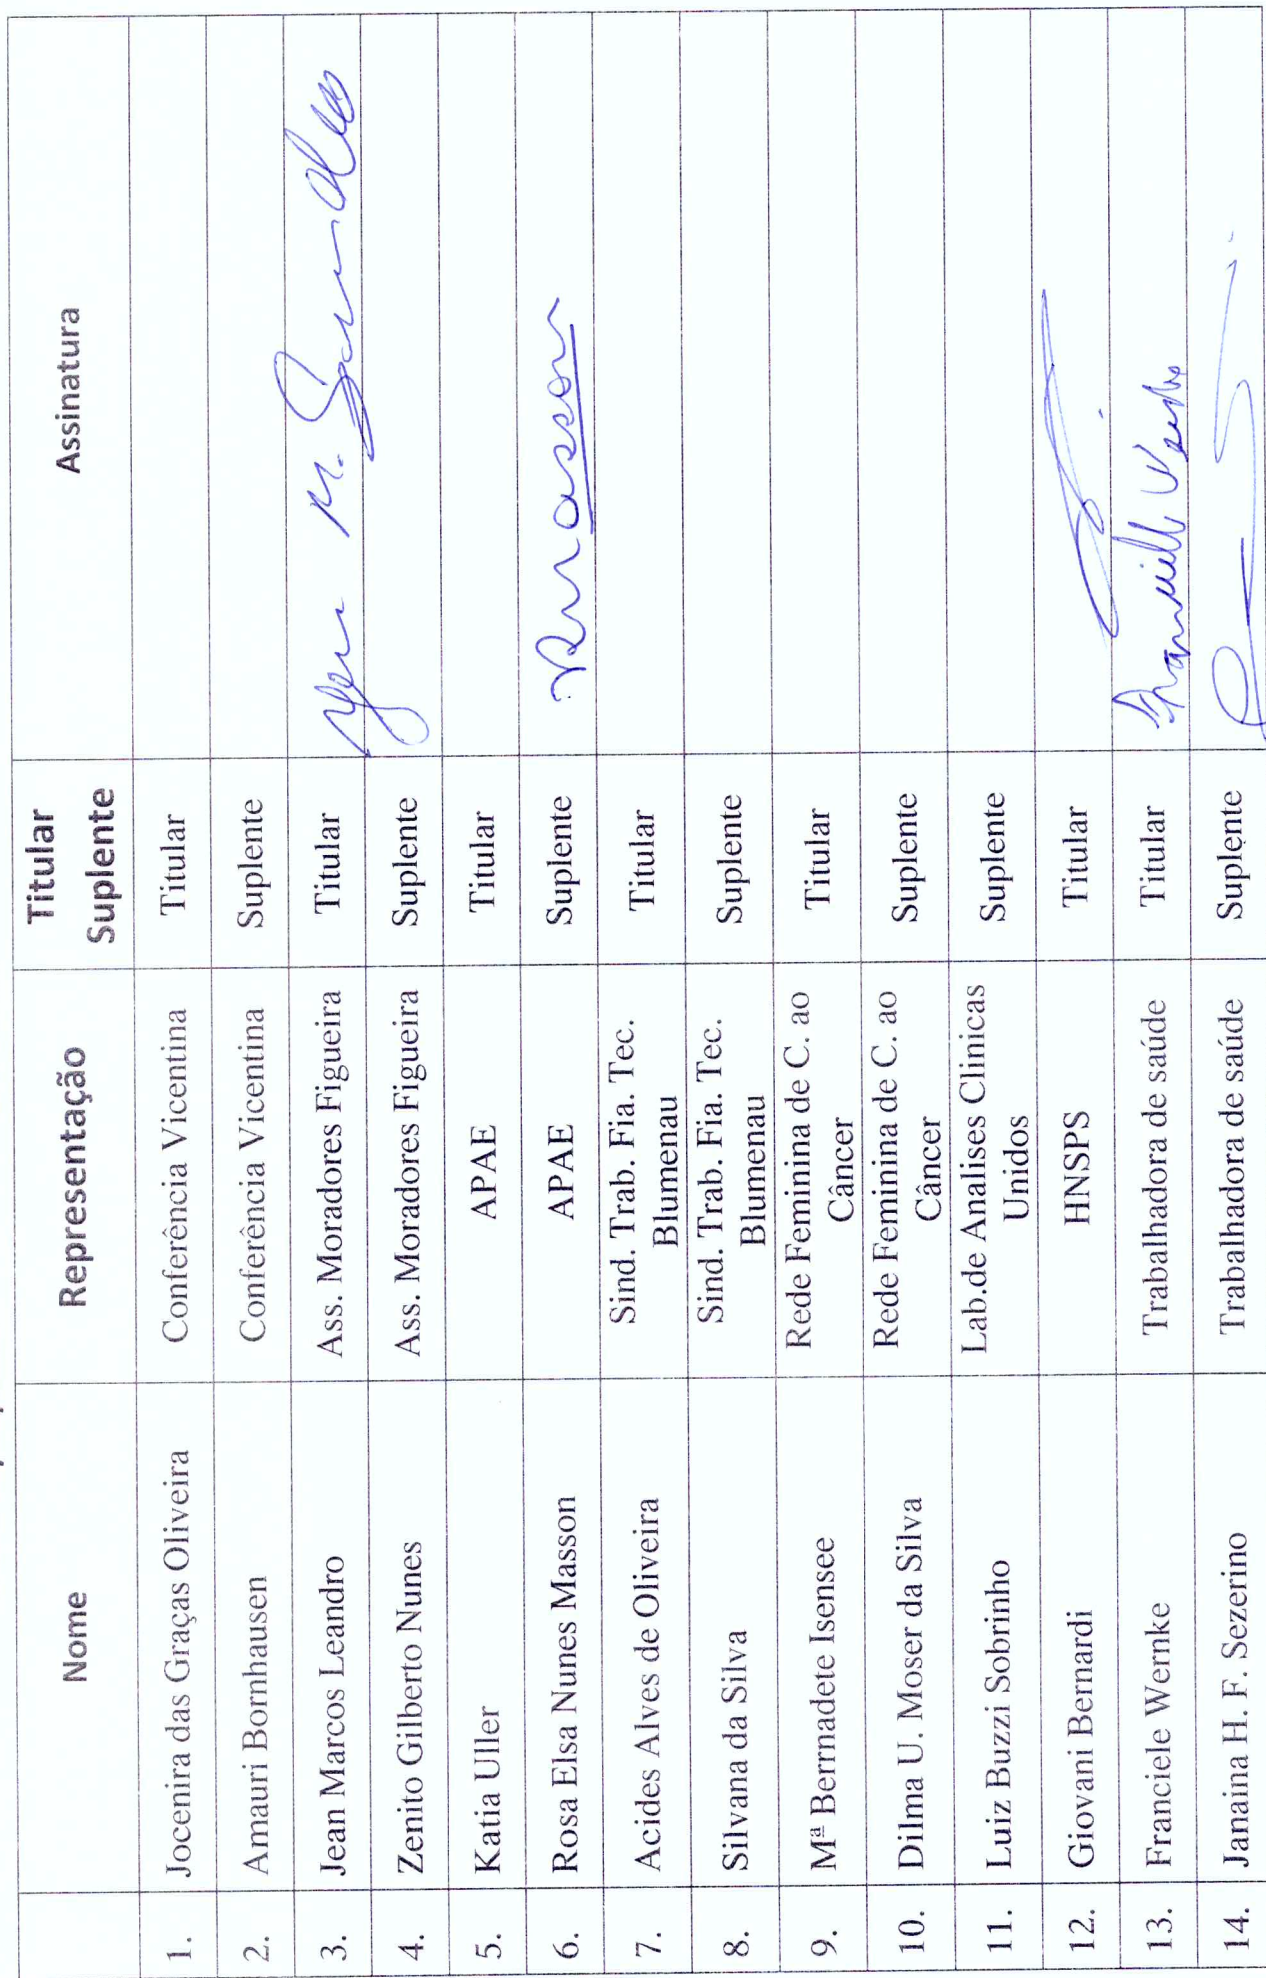 Nome Representação Titular Suplente Assinatura
1. Jocenira das Graças Oliveira Conferência Vicentina Titular
2. Amauri Bornhausen Conferência Vicentina Suplente
3. Jean Marcos Leandro Ass. Moradores Figueira Titular
4. Zenito Gilberto Nunes Ass. Moradores Figueira Suplente
5. Katia Uller APAE Titular
6. Rosa Elsa Nunes Masson APAE Suplente Rmasson
7. Acides Alves de Oliveira Sind. Trab. Fia. Tec. Blumenau Titular
8. Silvana da Silva Sind. Trab. Fia. Tec. Blumenau Suplente
9. Mª Berrnadete Isensee Rede Feminina de C. ao Câncer Titular
10. Dilma U. Moser da Silva Rede Feminina de C. ao Câncer Suplente
11. Luiz Buzzi Sobrinho Lab.de Analises Clinicas Unidos Suplente
12. Giovani Bernardi HNSPS Titular
13. Franciele Wernke Trabalhadora de saúde Titular
14. Janaina H. F. Sezerino Trabalhadora de saúde Suplente